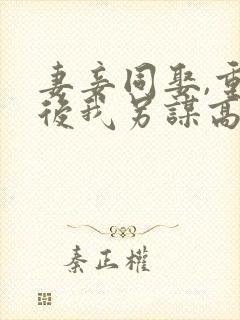 妻妾同娶,重
後我另謀高
秦正權